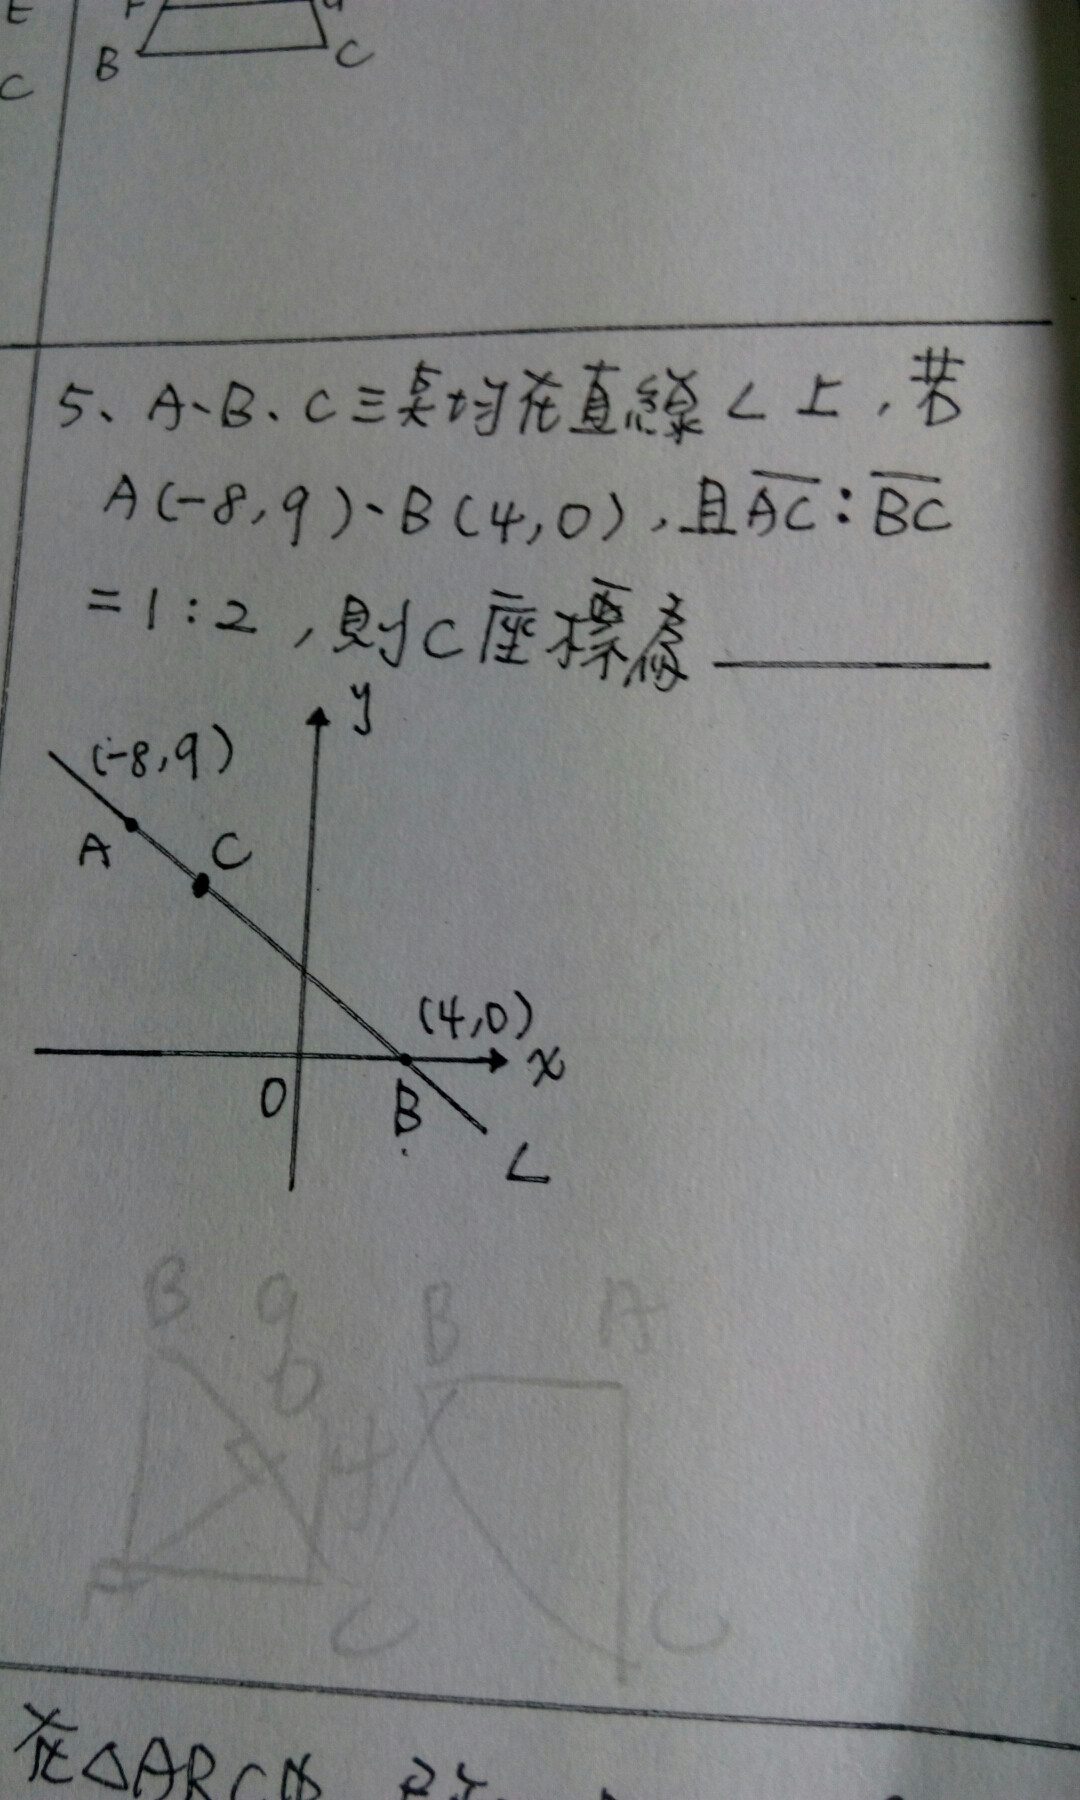 E
F
B
C
C
5、A、B、C三點均在直線L上,若
A(-8,9)、B(4,0),且AC:BC
=1:2,則C座標為
y
(-8,9)
A
C
(4,0)
x
O
B
L
B
A
B
C
C
在△ABC中